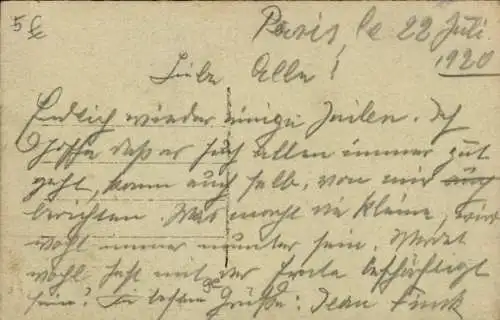 5 £
Paris, le 22 Juli
1920
Liebe Alle!
Endlich wieder einige Zeilen. Ich
hoffe daß es Euch allen immer gut
geht, kann auch selb. von mir auch
berichten. Was macht die Kleine, wird
wohl immer munter sein. Werdet
wohl fest mit der Ernte beschäftigt
sein? Die besten Grüße: Jean Finck